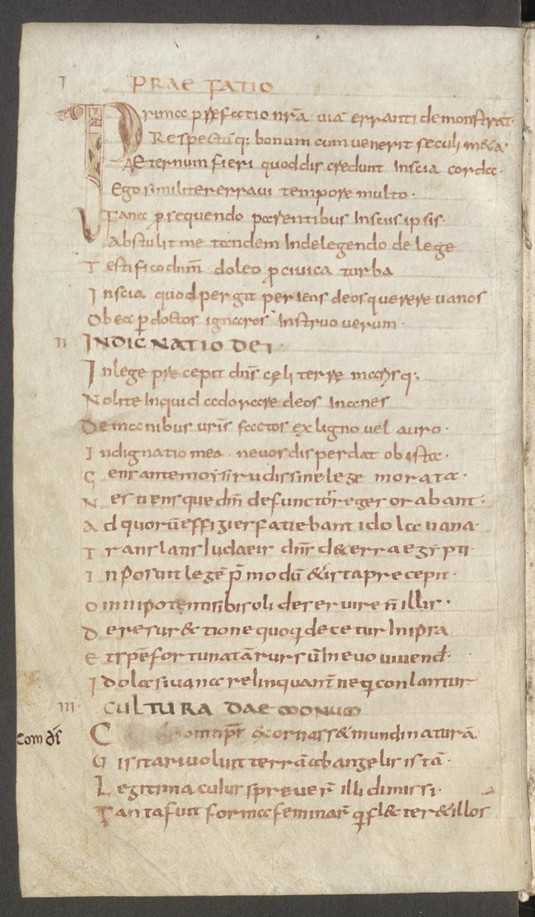 I PRAEFATIO
Prima p̄fectio nr̄a uiā erranti demonstrat·
Respectūq; bonum cum uenerit seculi meta·
Aeternum fieri quod discredunt inscia corda·
Ego similiter erraui tempore multo·
Fana ꝓsequendo parentibus insciis ipsis·
Abstuli me tandem inde legendo de lege
Testifico dnm̄ doleo ꝓ ciuica turba
Inscia quod pergit periens deos querere uanos
Ob ea ꝑdoctos ignaros instruo uerum·
II INDIGNATIO DEI·
In lege precepit dn̄s cęli terrę marisq;
Nolite inquid adorare deos inanes
De manibus uris̄ factos ex ligno uel auro·
Indignatio mea ne uos disperdat ob ista·
Gens ante moisi rudis sine lege morata·
Nestiens que dm̄ defunctos reges orabant·
Ad quorū effigies fatiebant idola uana·
Translatis iudaeis dn̄s de terra egypti
Inposuit legē p̄ modū & ista precepit·
Omnipotens sibi soli deseruire n̄ illis·
De resur&tione quoq; decetur in ipsa
Et spē fortunatā rursū in euo uiuend·
Idola si uana relinquant̄ neq; conlantur
III· CULTURA DAEMONUM
com di C omnips̄ exornass& mundi naturā
Uisitari uoluit terrā ab angelis istā·
Legitima cuius spreuer̄ illi dimissi·
Tanta fuit forma feminar̄ q̄ fl&ter& illos